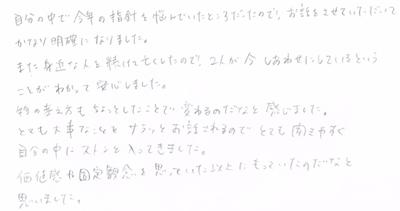 自分の中で今年の指針を悩んでいたところだったので、お話をさせていただいて
かなり明確になりました。
また身近な人を続けて亡くしたので、2人が今しあわせにしているという
ことがわかって安心しました。
物の考え方もちょっとしたことで変わるのだなと感じました。
とても大事なことをサラッとお話されるのでとても聞きやすく
自分の中にストンと入ってきました。
価値感や固定観念を思っていた以上にもっていたのだなと
思いました。